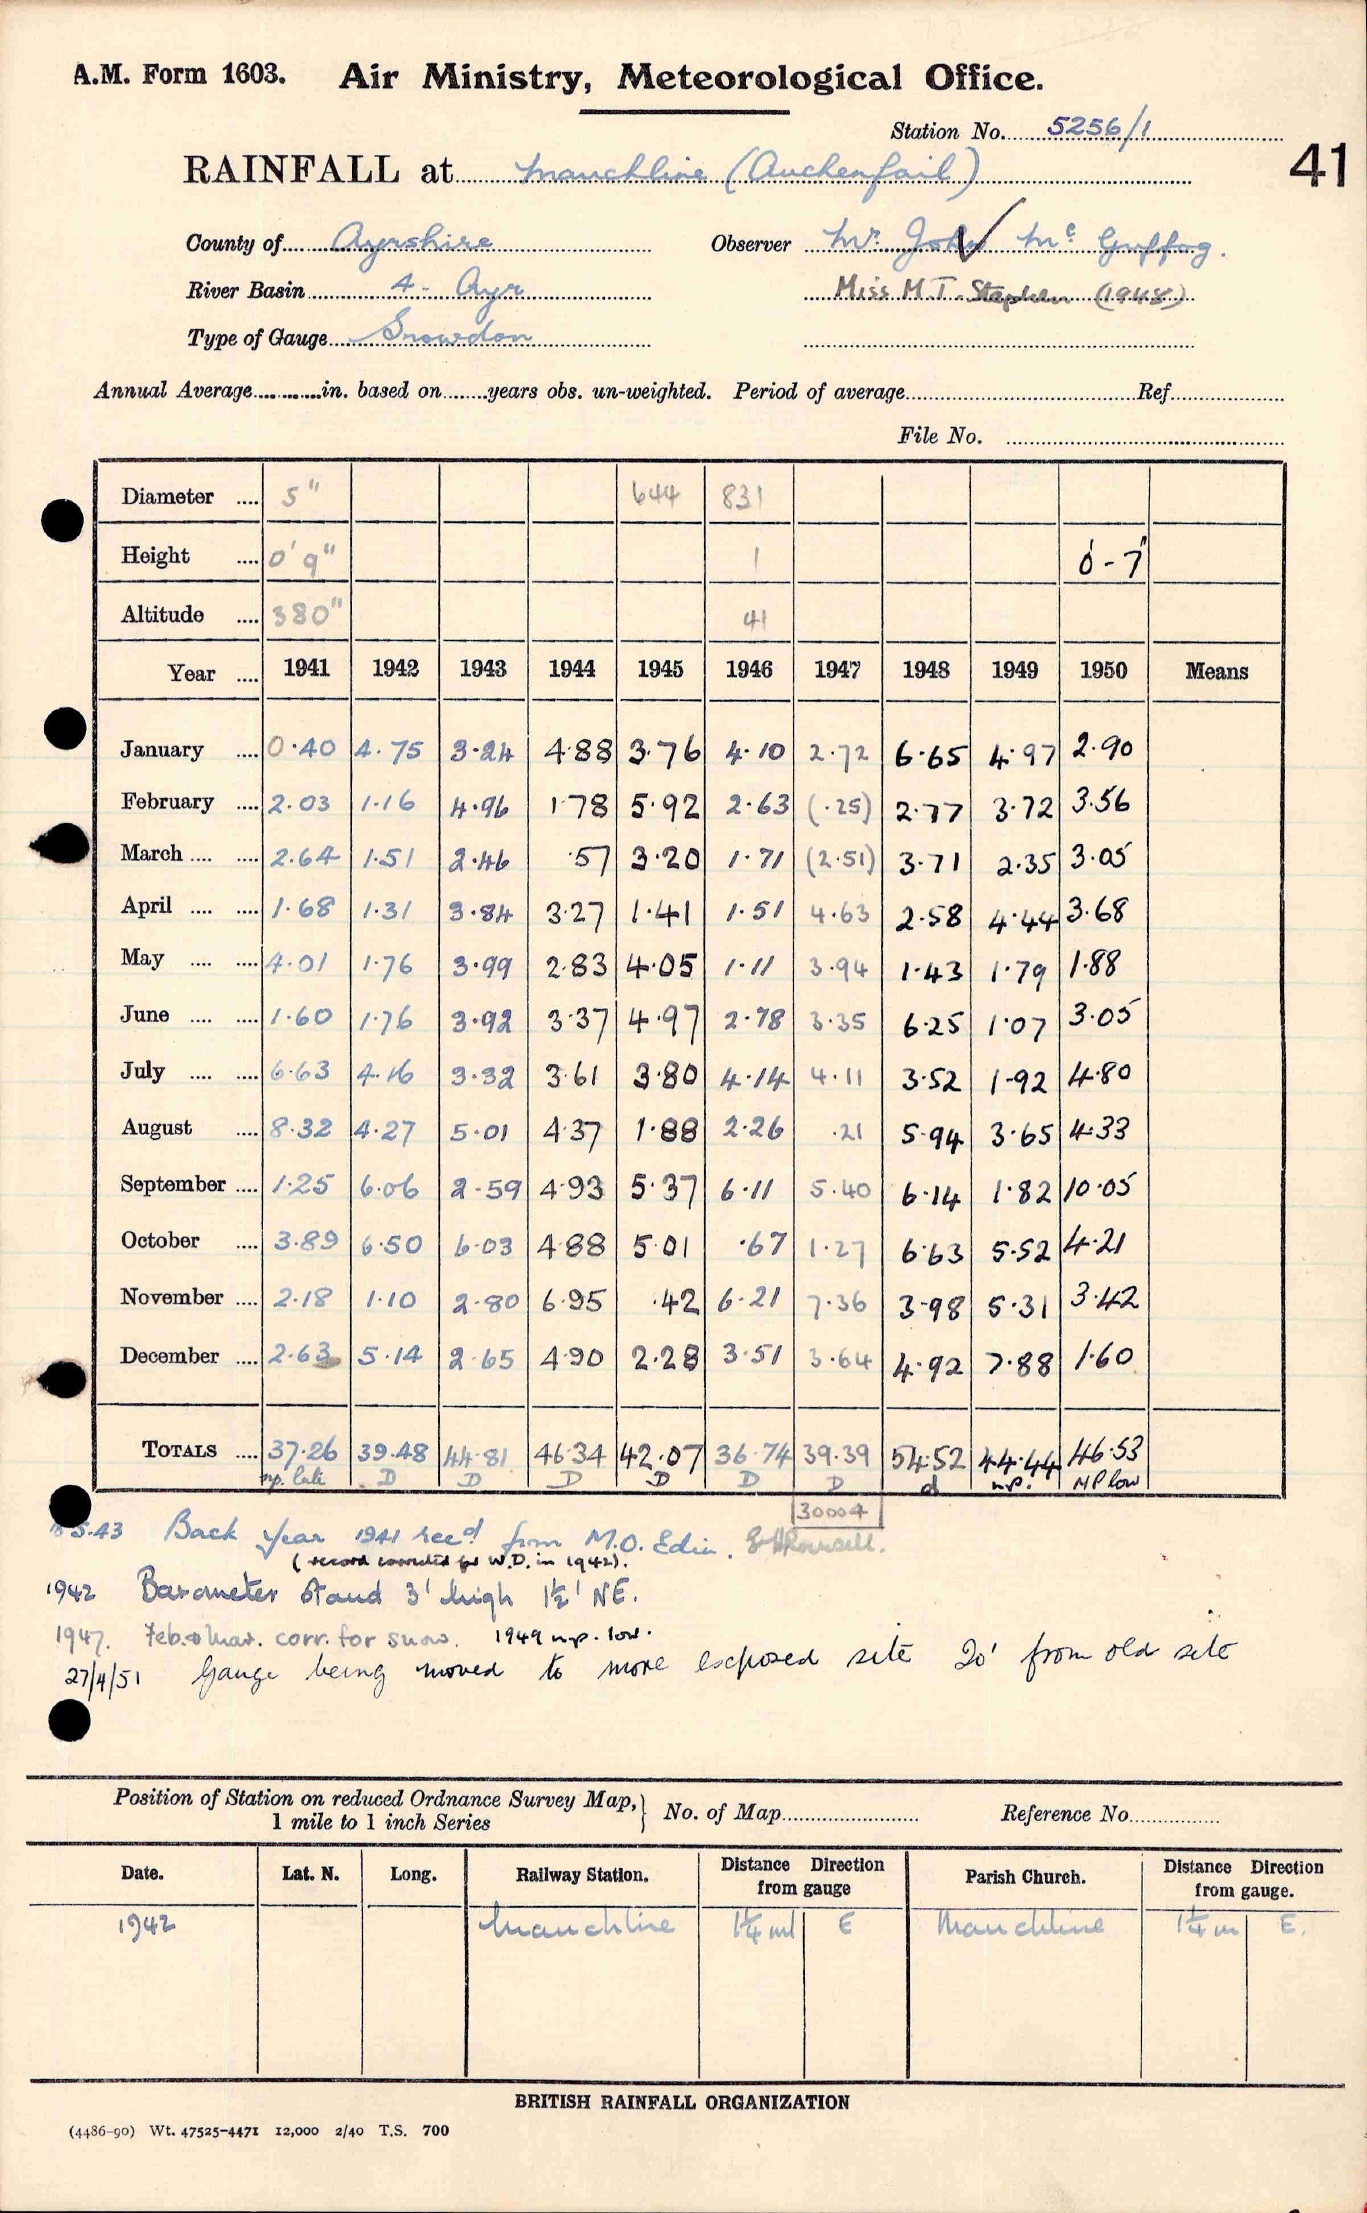 A.M. Form 1603. Air Ministry, Meteorological Office.
Station No. 5256/1
41
RAINFALL at Mauchline (Auchenfail)
County of Ayrshire Observer Mr. John Mc Guffog.
River Basin 4 - Ayr Miss M.T. Stephen (1948)
Type of Gauge Snowdon
Annual Average in. based on years obs. un-weighted. Period of average Ref
File No.
Diameter 5" 644 831
Height 0' 9" 1 0'-7"
Altitude 380" 41
Year 1941 1942 1943 1944 1945 1946 1947 1948 1949 1950 Means
January 0.40 4.75 3.24 4.88 3.76 4.10 2.72 6.65 4.97 2.90
February 2.03 1.16 4.96 1.78 5.92 2.63 (.25) 2.77 3.72 3.56
March 2.64 1.51 2.46 .57 3.20 1.71 (2.51) 3.71 2.35 3.05
April 1.68 1.31 3.84 3.27 1.41 1.51 4.63 2.58 4.44 3.68
May 4.01 1.76 3.99 2.83 4.05 1.11 3.94 1.43 1.79 1.88
June 1.60 1.76 3.92 3.37 4.97 2.78 3.35 6.25 1.07 3.05
July 6.63 4.16 3.32 3.61 3.80 4.14 4.11 3.52 1.92 4.80
August 8.32 4.27 5.01 4.37 1.88 2.26 .21 5.94 3.65 4.33
September 1.25 6.06 2.59 4.93 5.37 6.11 5.40 6.14 1.82 10.05
October 3.89 6.50 6.03 4.88 5.01 .67 1.27 6.63 5.52 4.21
November 2.18 1.10 2.80 6.95 .42 6.21 7.36 3.98 5.31 3.42
December 2.63 5.14 2.65 4.90 2.28 3.51 3.64 4.92 7.88 1.60
TOTALS 37.26 39.48 44.81 46.34 42.07 36.74 39.39 54.52 44.44 46.53
n.p. late D D D D D D d n.p. NP low
30004
5.43 Back year 1941 recd from M.O. Edin.
(record corrected for W.D. in 1942).
1942 Barometer stand 3' high 1½' NE.
1947. Feb. & Mar. corr. for snow. 1949 n.p. low.
27/4/51 Gauge being moved to more exposed site 20' from old site
Position of Station on reduced Ordnance Survey Map, 1 mile to 1 inch Series } No. of Map Reference No.
Date. Lat. N. Long. Railway Station. Distance Direction from gauge Parish Church. Distance Direction from gauge.
1942 Mauchline 1¼ ml E Mauchline 1¼ m E.
BRITISH RAINFALL ORGANIZATION
(4486-90) Wt. 47525-4471 12,000 2/40 T.S. 700